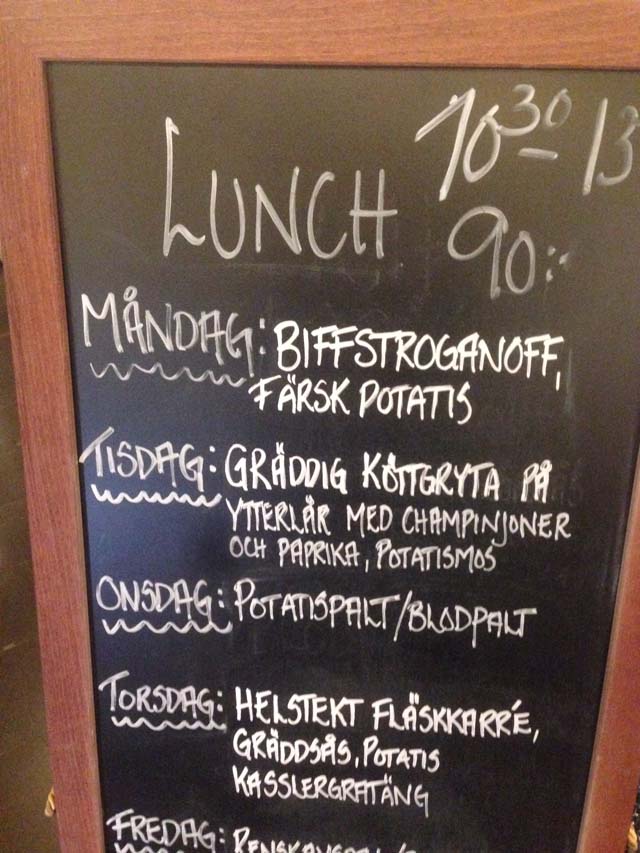 LUNCH 10³⁰ - 13
90:-
MÅNDAG: BIFFSTROGANOFF,
FÄRSK POTATIS
TISDAG: GRÄDDIG KÖTTGRYTA PÅ
YTTERLÅR MED CHAMPINJONER
OCH PAPRIKA, POTATISMOS
ONSDAG: POTATISPALT/BLODPALT
TORSDAG: HELSTEKT FLÄSKKARRÉ,
GRÄDDSÅS, POTATIS
KASSLERGRATÄNG
FREDAG: